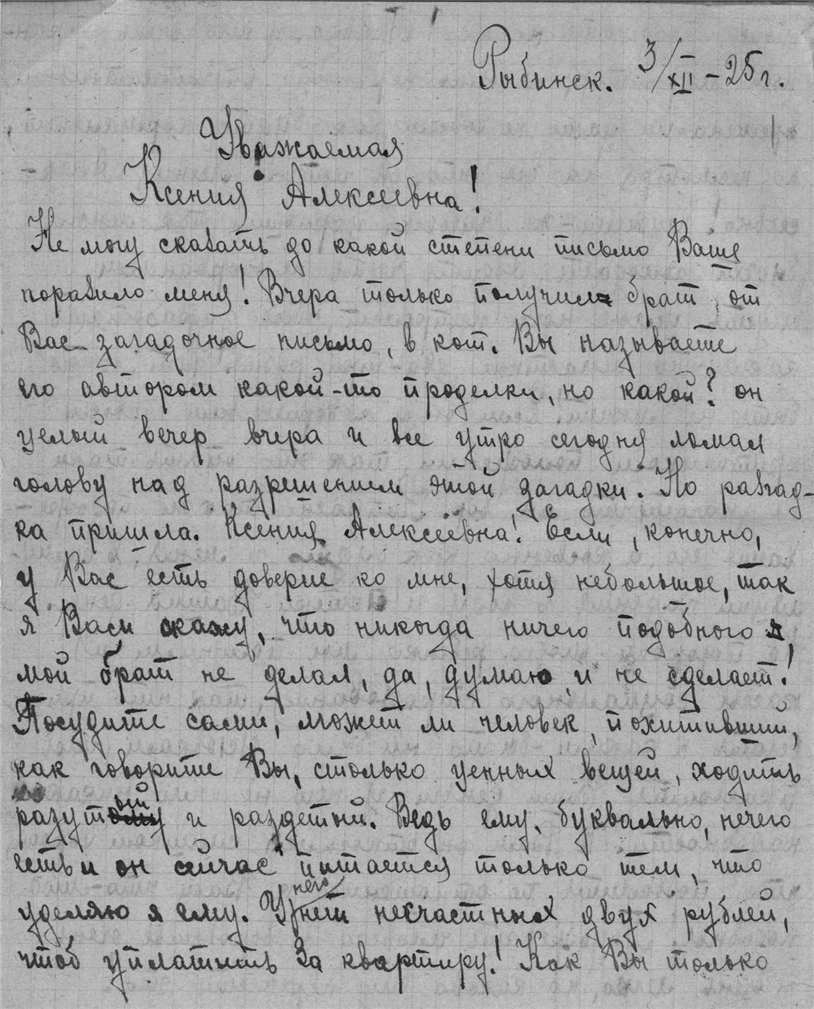 Рыбинск. 3/XII – 25 г.
Уважаемая
Ксения Алексеевна!
Не могу сказать до какой степени письмо Ваше
поразило меня! Вчера только получил брат от
Вас загадочное письмо, в кот. Вы называете
его автором какой-то проделки, но какой? он
целый вечер вчера и все утро сегодня ломал
голову над разрешением этой загадки. Но разгад-
ка пришла. Ксения Алексеевна! Если, конечно,
у Вас есть доверие ко мне, хотя небольшое, так
я Вам скажу, что никогда ничего подобного
мой брат не делал, да, думаю и не сделает!
Посудите сами, может ли человек, похитивший,
как говорите Вы, столько ценных вещей, ходить
разутый и раздетый. Ведь ему, буквально, нечего
есть и он сейчас питается только тем, что
уделяю я ему. У него нет несчастных двух рублей,
чтоб уплатить за квартиру! Как Вы только